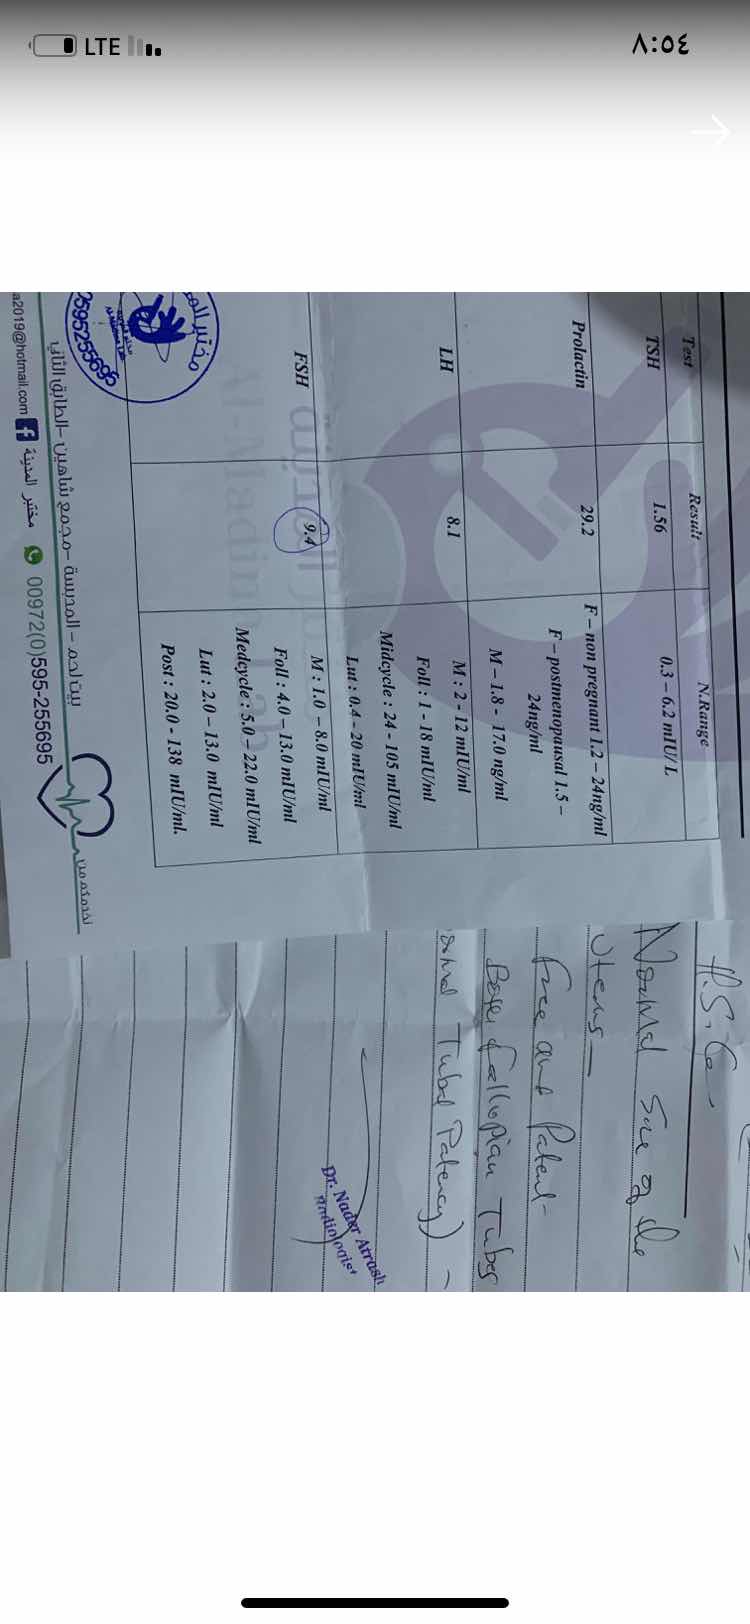 LTE
٨:٥٤
Test Result N.Range
TSH 1.56 0.3 – 6.2 mIU/L
Prolactin 29.2 F – non pregnant 1.2 – 24ng/ml
F – postmenopausal 1.5 –
24ng/ml
M – 1.8 - 17.0 ng/ml
LH 8.1 M : 2 - 12 mIU/ml
Foll : 1 - 18 mIU/ml
Midcycle : 24 - 105 mIU/ml
Lut : 0.4 - 20 mIU/ml
FSH 9.4 M : 1.0 – 8.0 mIU/ml
Foll : 4.0 – 13.0 mIU/ml
Medcycle : 5.0 – 22.0 mIU/ml
Lut : 2.0 – 13.0 mIU/ml
Post : 20.0 - 138 mIU/ml.
مختبر
595255695
بيت لحم – المدبسة – مجمع شاهين – الطابق الثاني
a2019@hotmail.com مختبر المدينة 00972(0)595-255695
H.S.G
Normal Size of the
Uterus –
free and Patent
Fallopian Tubes
Tubal Patency) –
Dr. Nader Atrash
Radiologist